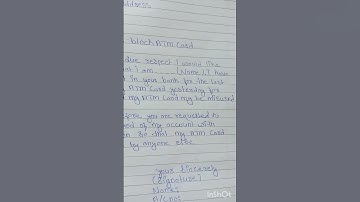 address
block ATM Card
due respect I would like
I am (Name). I have
in your bank for the last
ATM Card yesterday for
my ATM Card may be misused
you are requested to
of my account with
that my ATM Card
by anyone else
your Sincerely
(Signature)
Name:
A/C no:
InShOt